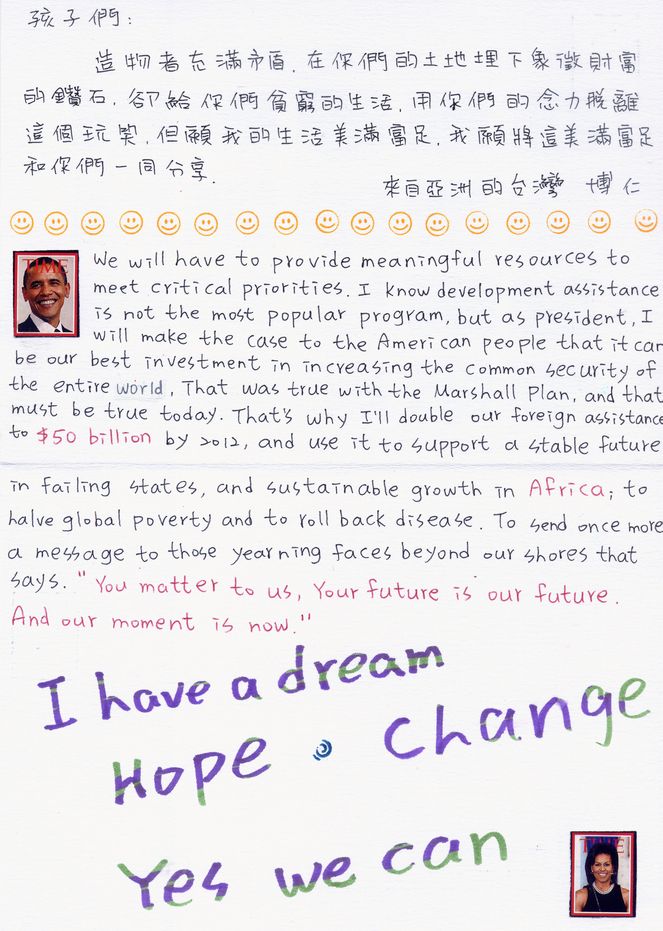 孩子們:
造物者充滿矛盾.在你們的土地埋下象徵財富
的鑽石.卻給你們貧窮的生活.用你們的念力脫離
這個玩笑.但願我的生活美滿富足.我願將這美滿富足
和你們一同分享.
來自亞洲的台灣 博仁
TIME
We will have to provide meaningful resources to
meet critical priorities. I know development assistance
is not the most popular program, but as president, I
will make the case to the American people that it can
be our best investment in increasing the common security of
the entire world, That was true with the Marshall Plan, and that
must be true today. That's why I'll double our foreign assistance
to $50 billion by 2012, and use it to support a stable future
in failing states, and sustainable growth in Africa; to
halve global poverty and to roll back disease. To send once more
a message to those yearning faces beyond our shores that
says. "You matter to us, Your future is our future.
And our moment is now."
I have a dream
Hope • Change
Yes we can
TIME